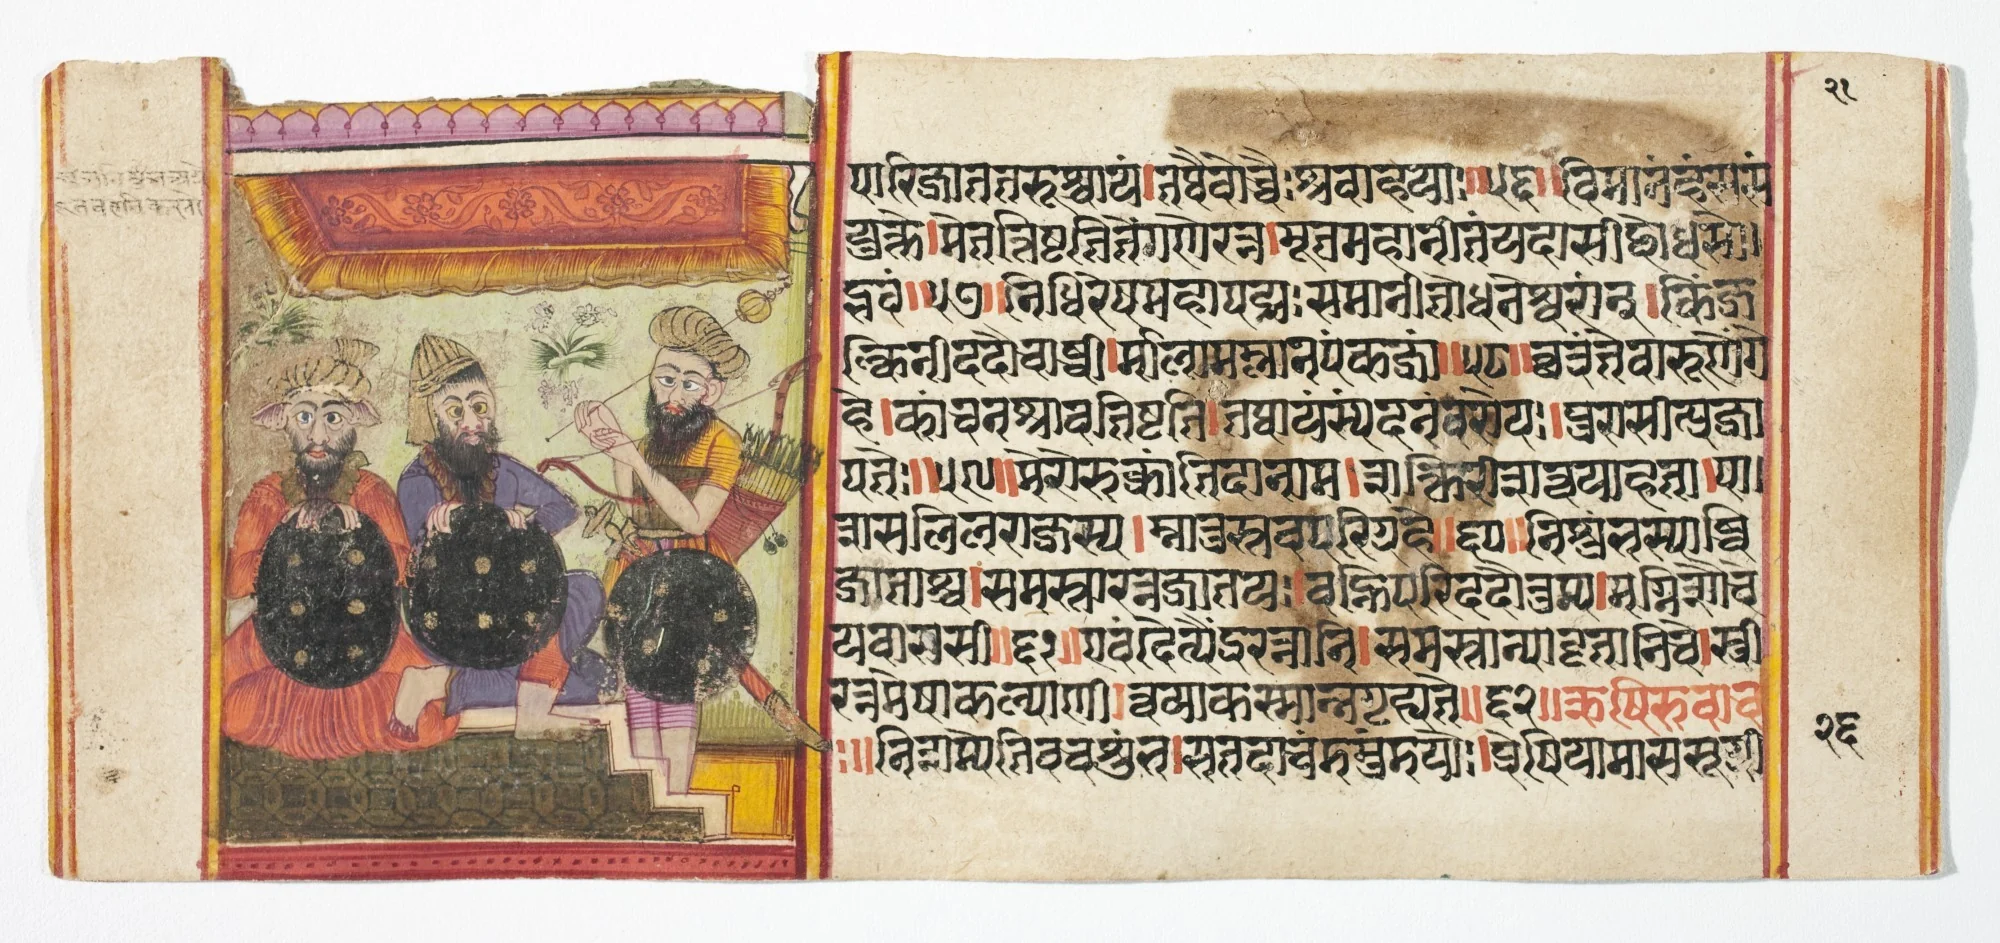 २१
पारिजाततरुश्चायं।तथैवोच्चैःश्रवाहयः॥५६॥विमानंहंससं
युक्त।मेतत्तिष्टतितेंगणे।रत्नभूतमहानीतंयदासीद्वेधसो
द्भुवं॥५७॥निधिरेषमहापद्मःसमानीतोधनेश्वरात्।किंज
ल्किनीददौचाब्धी।र्मालामम्लानपंकजां॥५८॥छत्रंतेवारुणंगे
हे।कांचनश्रावतिष्टति।तथायंस्यंदनंवरोयः।पुरासीत्प्रजा
पतेः॥५९॥मृत्योरुत्क्रांतिदानाम।शक्तिरीशत्वयाहता।पा।
शसलिलराजस्य।भ्रातुस्तवपरिग्रहे॥६०॥निशुंभस्याब्धि
जाताश्च।समस्तारत्नजातयः।वह्निपरिददौतुभ्य।मग्निशौचे
चवाससी॥६१॥एवंदैत्येंद्ररत्नानि।समस्तान्याहृतानिते।स्त्री
रत्नमेषाकल्याणी।त्वयाकस्मान्नगृह्यते॥६२॥ऋषिरुवाच
॥निशम्येतिवचशुंभ।सतदाचंडमुंडयोः।प्रेषयामाससुग्री
२६